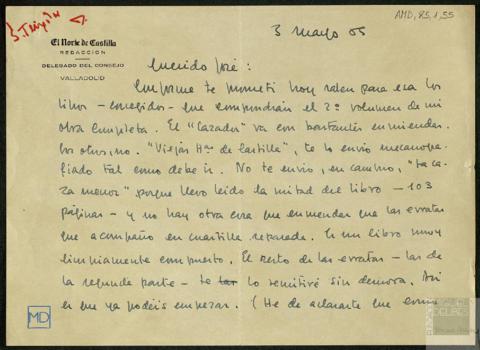 AMD, 85, 1, 55
3 mayo 65
El Norte de Castilla
REDACCION
DELEGADO DEL CONSEJO
VALLADOLID
Querido José:
Conforme te prometí hoy salen para esa los
libros – corregidos – que compondrán el 2º volumen de mi
obra completa. El "Cazador" va con bastantes enmiendas.
los otros, no. "Viejas Has de Castilla", te lo envío mecanogra-
fiado tal como debe ir. No te envío, en cambio, "La ca-
za menor" porque llevo leído la mitad del libro – 103
páginas – y no hay otra cosa que enmendar que las erratas
que acompaño en cuartilla separada. Es un libro muy
limpiamente compuesto. El resto de las erratas – las de
la segunda parte – te lo remitiré sin demora. Así
es que ya podéis empezar. (He de aclararte que como
MD